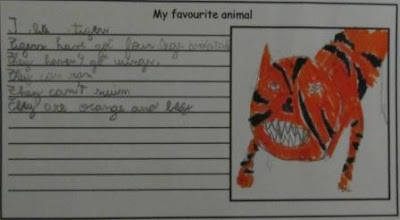 My favourite animal
I like tigers.
Tigers have got four legs and a tail
They haven't got wings.
They can run
They can't swim
They are orange and